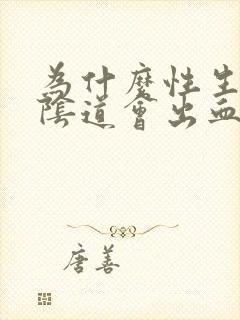 為什麼性生
陰道會出血
唐善